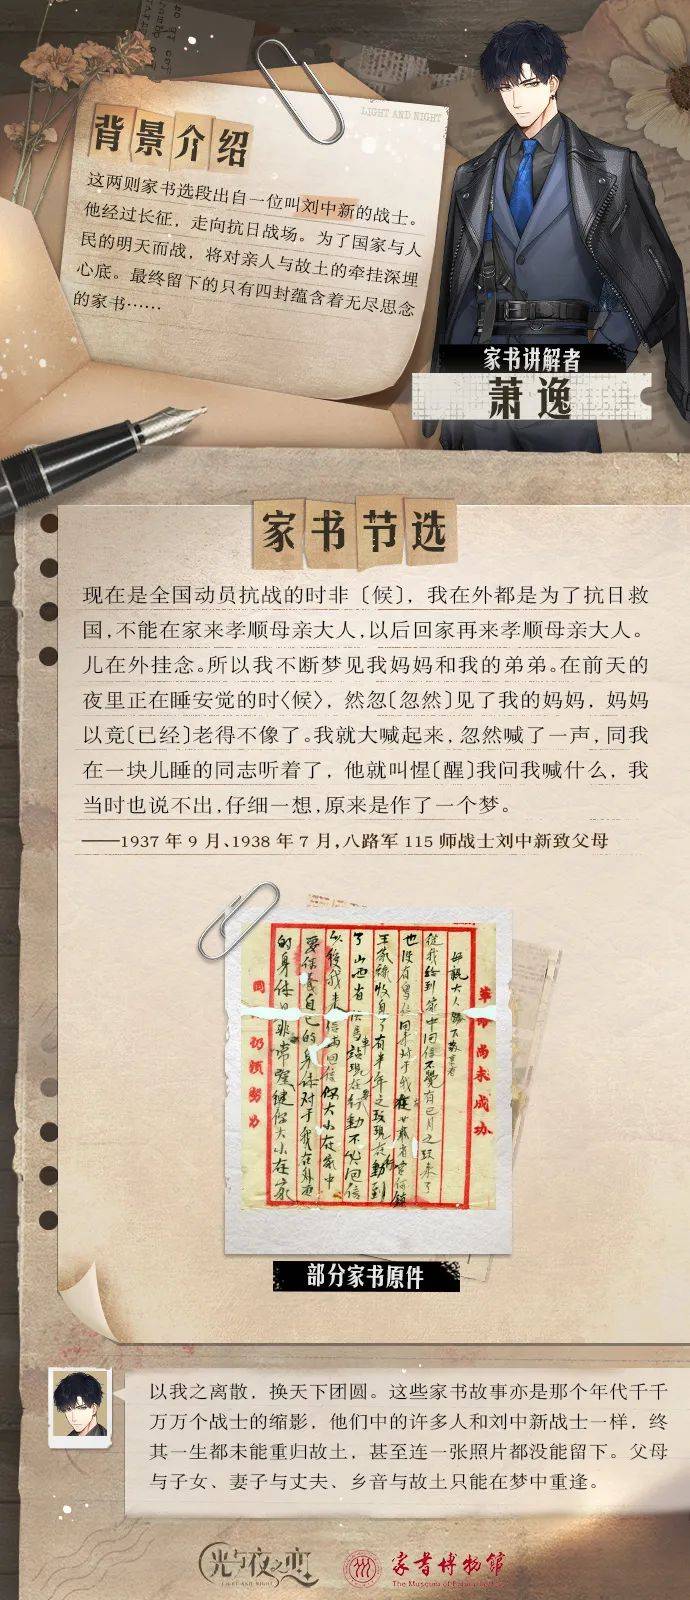 LIGHT AND NIGHT
背景介绍
这两则家书选段出自一位叫刘中新的战士。
他经过长征，走向抗日战场。为了国家与人
民的明天而战，将对亲人与故土的牵挂深埋
心底。最终留下的只有四封蕴含着无尽思念
的家书……
家书讲解者
萧逸
家书节选
现在是全国动员抗战的时非〔候〕，我在外都是为了抗日救
国，不能在家来孝顺母亲大人，以后回家再来孝顺母亲大人。
儿在外挂念。所以我不断梦见我妈妈和我的弟弟。在前天的
夜里正在睡安觉的时〈候〉，然忽〔忽然〕见了我的妈妈，妈妈
以竟〔已经〕老得不像了。我就大喊起来，忽然喊了一声，同我
在一块儿睡的同志听着了，他就叫惺〔醒〕我问我喊什么，我
当时也说不出，仔细一想，原来是作了一个梦。
——1937 年 9 月、1938 年 7 月，八路军 115 师战士刘中新致父母
革命尚未成功
母亲大人
部分家书原件
以我之离散，换天下团圆。这些家书故事亦是那个年代千千
万万个战士的缩影，他们中的许多人和刘中新战士一样，终
其一生都未能重归故土，甚至连一张照片都没能留下。父母
与子女、妻子与丈夫、乡音与故土只能在梦中重逢。
光与夜之恋
LIGHT AND NIGHT
家书博物馆
The Museum of Family Letters